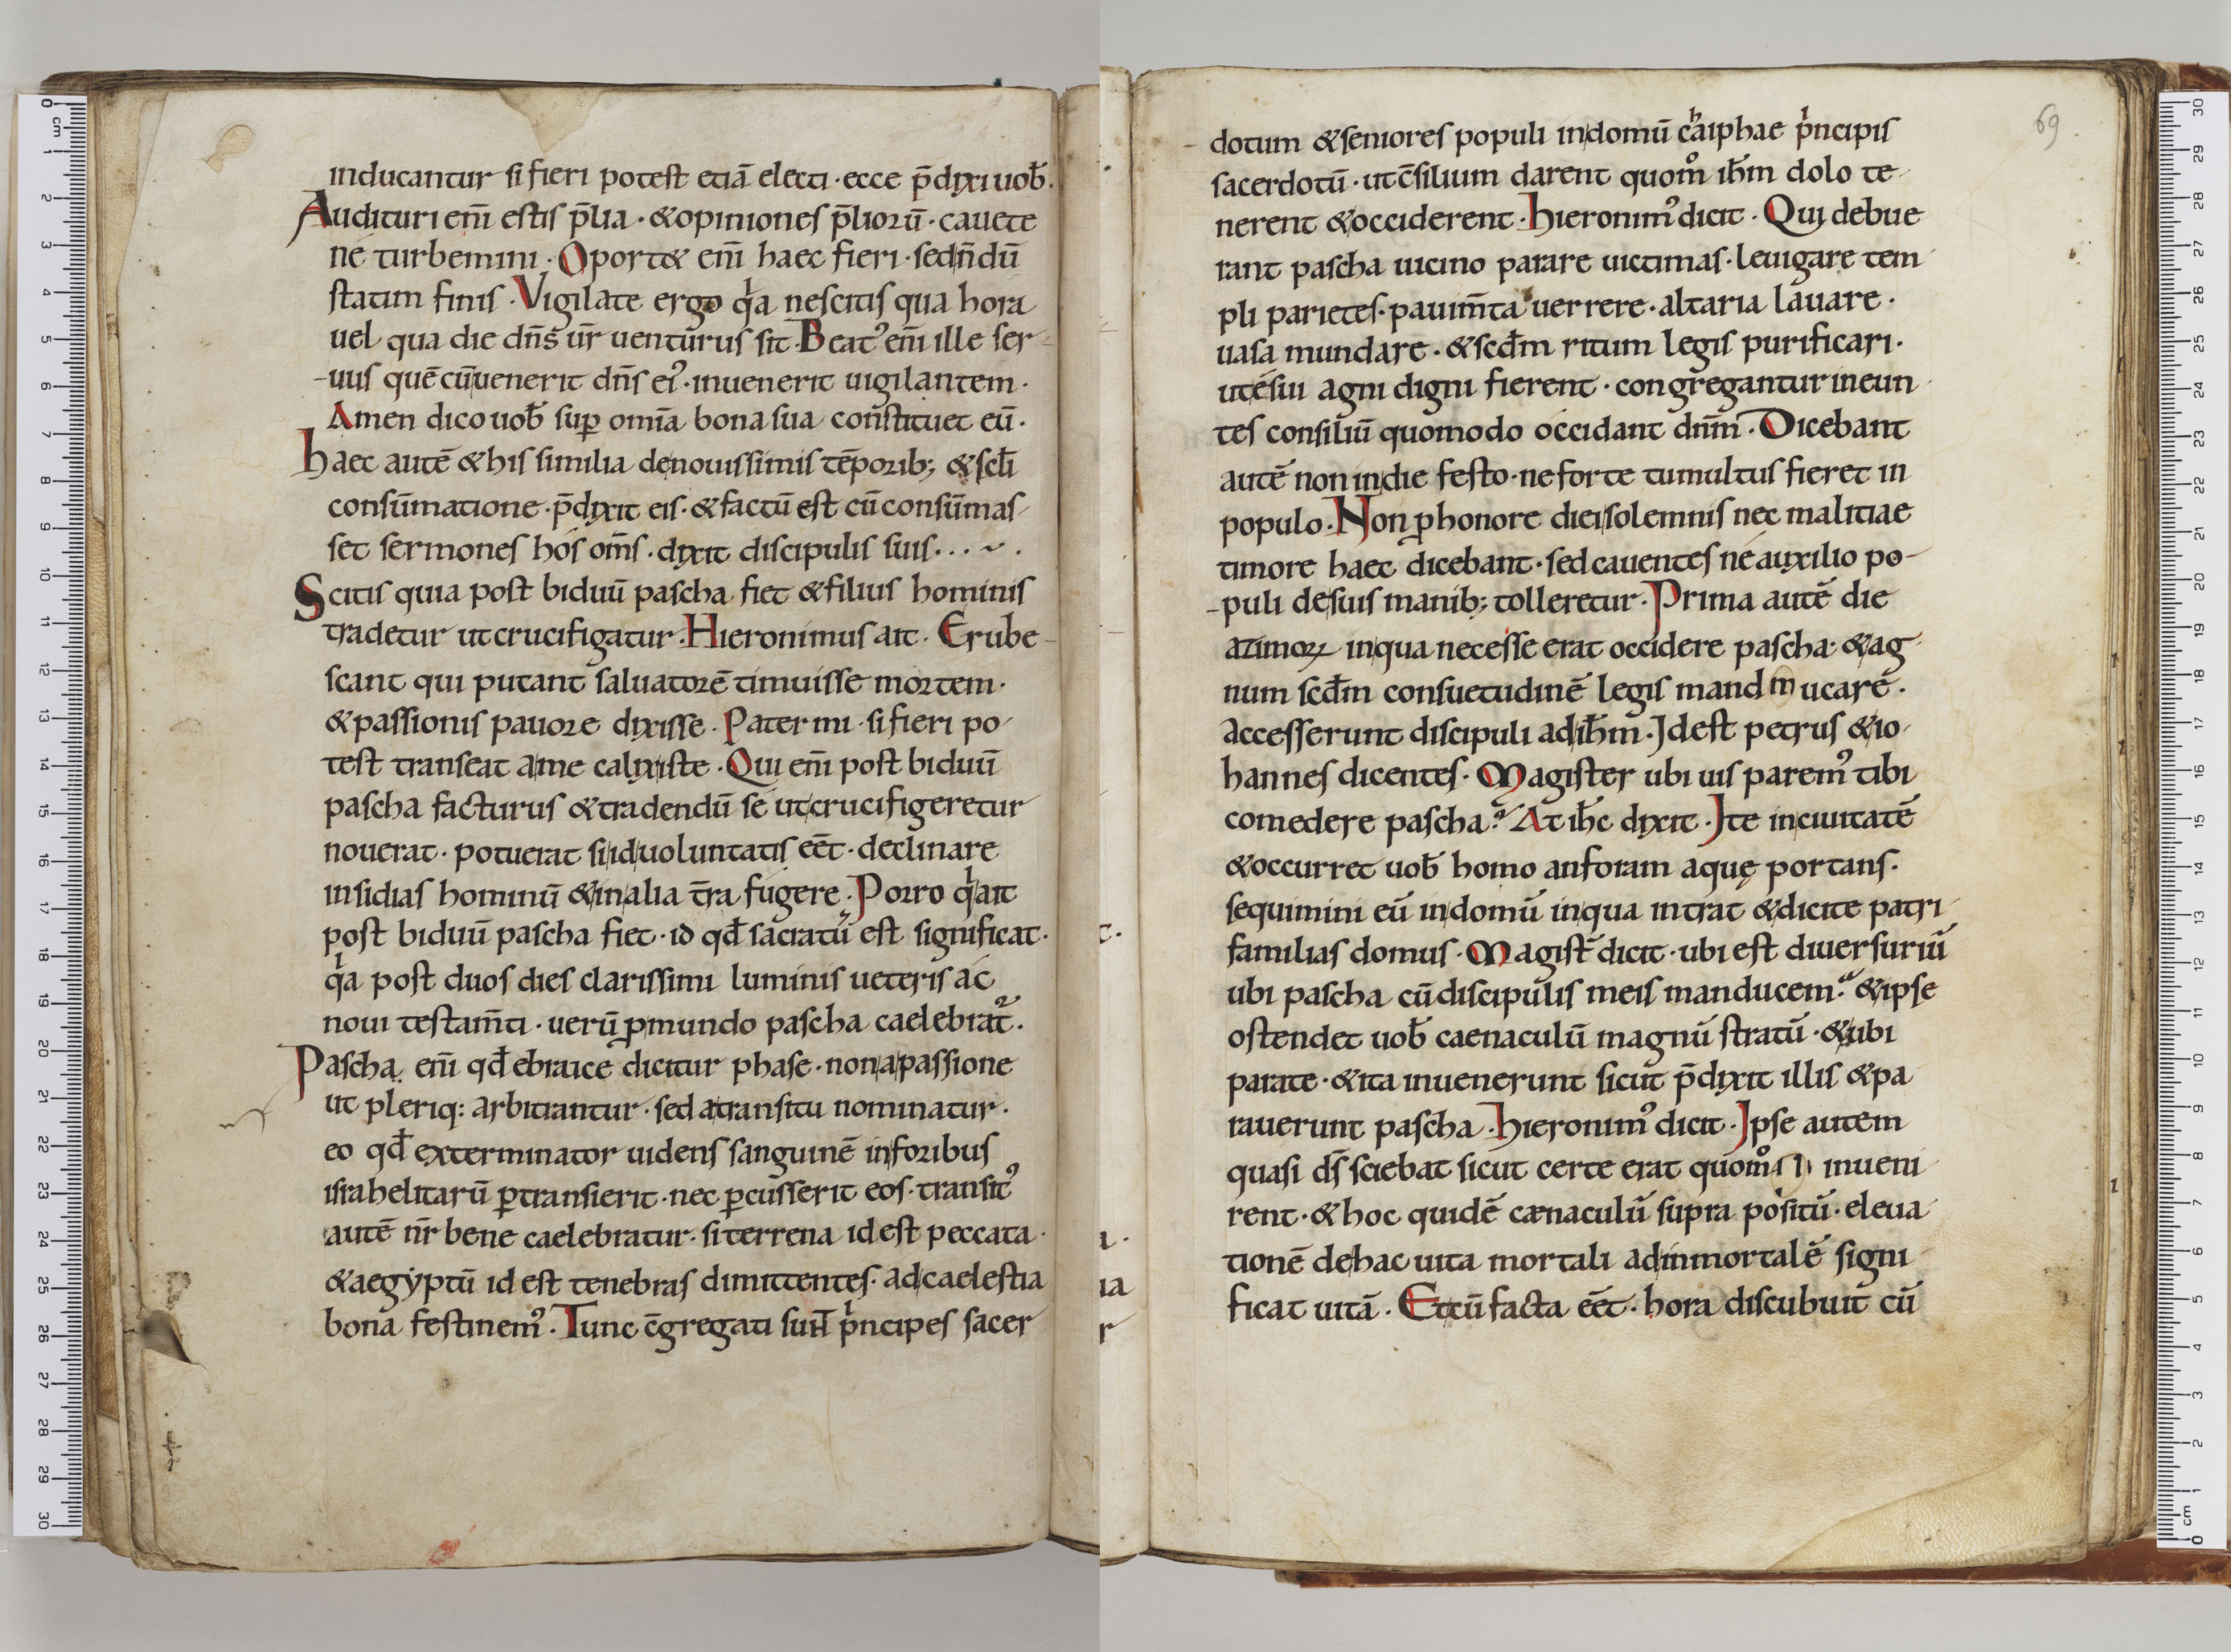 inducantur si fieri potest etiā electi · ecce p̄dixi uob̄.
Audituri enī estis p̄lia · & opiniones p̄liorū · cauete
ne turbemini · Oport& enī haec fieri · sed n̄dū
statim finis · Vigilate ergo qͥa nescitis qua hora
uel qua die dn̄s ūr uenturus sit · Beatꝰ enī ille ser-
uus quē cū uenerit dn̄s eiꝰ · inuenerit uigilantem ·
Amen dico uob̄ suꝑ omīa bona sua constituet eū ·
haec autē & his similia de nouissimis tēporib; & scl̄i
consūmatione · p̄dixit eis · & factū est cū consūmas-
set sermones hos om̄s · dixit discipulis suis · . . ~ .
Scitis quia post biduū pascha fiet & filius hominis
tradetur ut crucifigatur · Hieronimus ait · Erube-
scant qui putant saluatorē timuisse mortem ·
& passionis pauore dixisse · Pater mi · si fieri po-
test transeat a me calix iste · Qui enī post biduū
pascha facturus & tradendū se ut crucifigeretur
nouerat · potuerat si id uoluntatis eēt · declinare
insidias hominū & in alia t̄ra fugere · Porro qͥ ait
post biduū pascha fiet · id qđ sacratū est significat ·
qͥa post duos dies clarissimi luminis ueteris ac
noui testam̄ti · uerū ꝓ mundo pascha caelebratᷣ ·
Pascha enī qđ ebraice dicitur phase · non a passione
ut pleriq: arbitrantur · sed a transitu nominatur ·
eo qđ exterminator uidens sanguinē in foribus
israhelitarū ꝑtransierit · nec ꝑcusserit eos · transitꝰ
autē nr̄ bene caelebratur · si terrena id est peccata ·
& aegyptū id est tenebras dimittentes · ad caelestia
bona festinemꝰ · Tunc c̄gregati sunt̄ pͥncipes sacer
69
dotum & seniores populi in domū cʰaiphae pͥncipis
sacerdotū · ut c̄silium darent quom̊ ih̄m dolo te-
nerent & occiderent · hieronimꝰ dicit · Qui debue
rant pascha uicino parare uictimas · leuigare tem
pli parietes · pauim̄ta uerrere · altaria lauare ·
uasa mundare · & scđm ritum legis purificari ·
ut esui agni digni fierent · congregantur ineun
tes consiliū quomodo occidant dn̄m · Dicebant
autē non in die festo · ne forte tumultus fieret in
populo · Non ꝓ honore diei solemnis nec malitiae
timore haec dicebant · sed cauentes ne auxilio po-
puli de suis manib; tolleretur · Prima autē die
azimoꝝ in qua necesse erat occidere pascha · & ag
num scđm consuetudinē legis mand m ucare ·
accesserunt discipuli ad ih̄m · Id est petrus & io-
hannes dicentes · Magister ubi uis paremꝰ tibi
comedere pascha? At ih̄c dixit · Ite in ciuitatē
& occurret uob̄ homo anforam aquę portans ·
sequimini eū in domū in qua intrat & dicite patri
familias domus · Magist̄ dicit · ubi est diuersuriū
ubi pascha cū discipulis meis manducem? & ipse
ostendet uob̄ caenaculū magnū stratū · & ubi
parate · & ita inuenerunt sicut p̄dixit illis & pa
rauerunt pascha · hieronimꝰ dicit · Ipse autem
quasi ds̄ sciebat sicut certe erat quom̊ inueni
rent · & hoc quidē cænaculū supra positū · eleua
tionē de hac uita mortali ad inmortalē signi
ficat uitā · Et cū facta eēt · hora discubuit cū